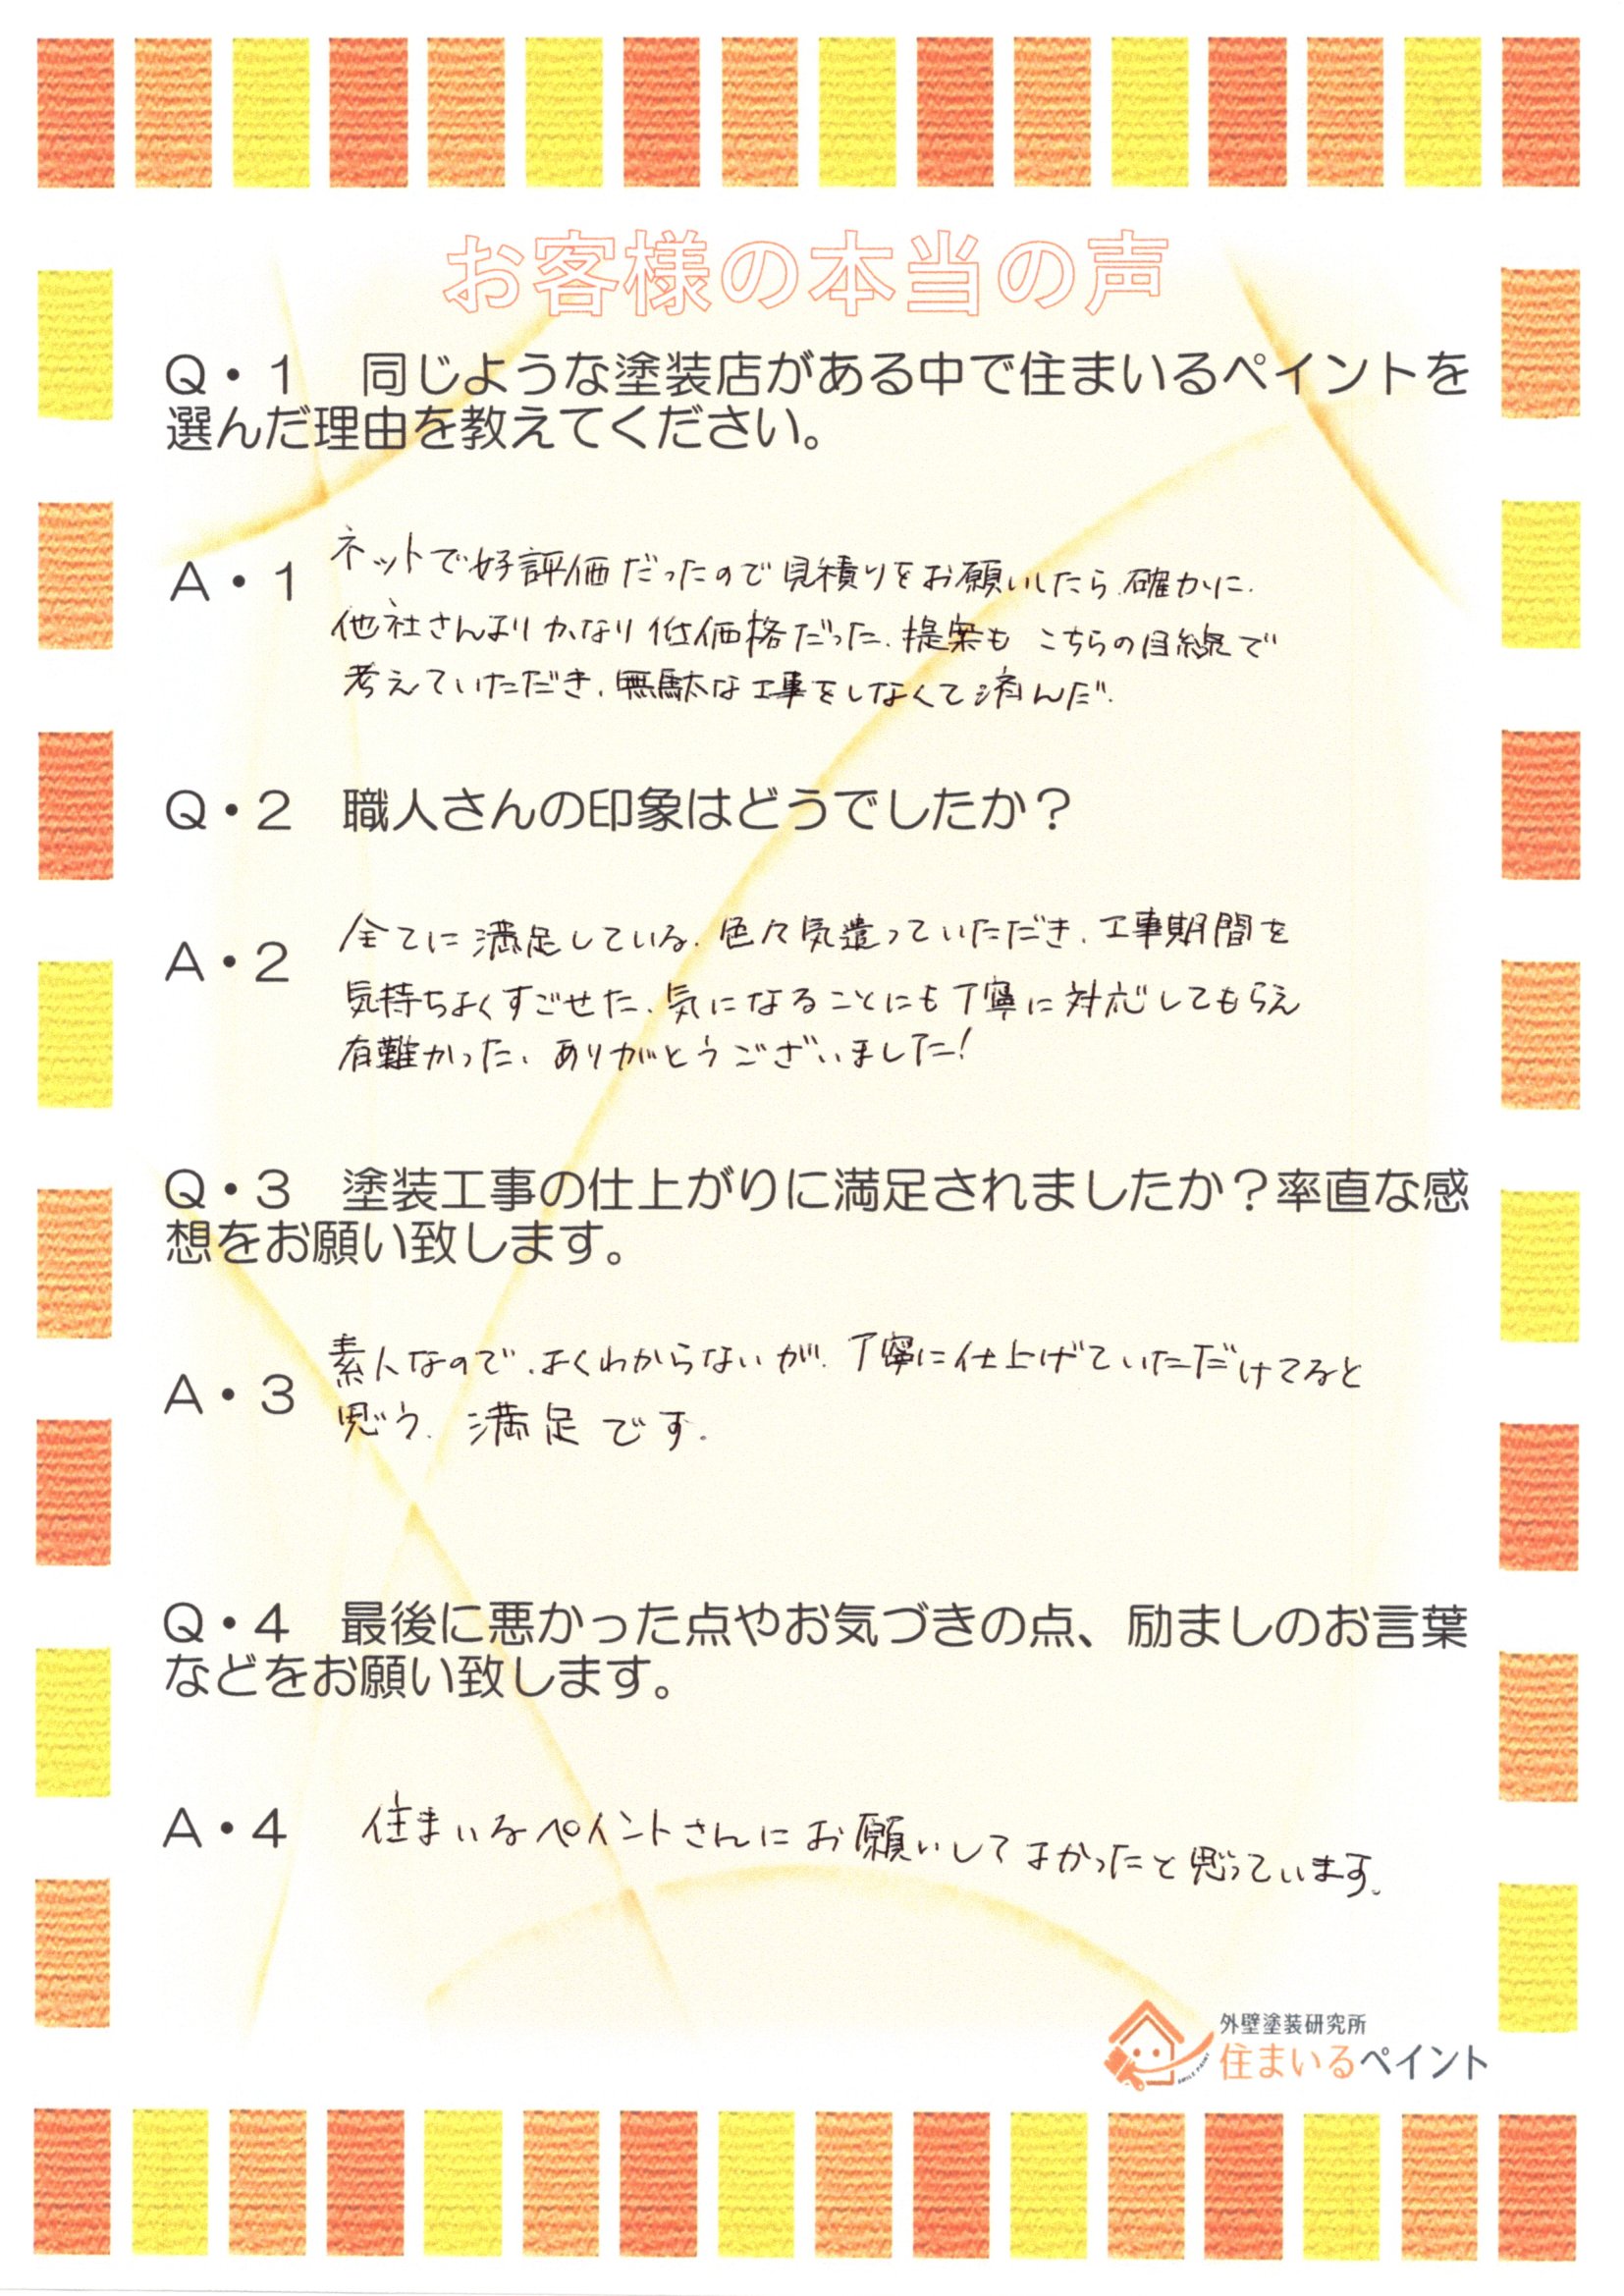 お客様の本当の声
Q・1　同じような塗装店がある中で住まいるペイントを
選んだ理由を教えてください。
A・1
ネットで好評価だったので見積りをお願いしたら、確かに、
他社さんよりかなり低価格だった。提案も こちらの目線で
考えていただき、無駄な工事をしなくて済んだ。
Q・2　職人さんの印象はどうでしたか？
A・2
全てに満足している。色々気遣っていただき、工事期間を
気持ちよくすごせた。気になることにも丁寧に対応してもらえ
有難かった。ありがとうございました！
Q・3　塗装工事の仕上がりに満足されましたか？率直な感
想をお願い致します。
A・3
素人なので、よくわからないが、丁寧に仕上げていただけてると
思う。満足です。
Q・4　最後に悪かった点やお気づきの点、励ましのお言葉
などをお願い致します。
A・4
住まいるペイントさんにお願いしてよかったと思っています。
外壁塗装研究所
住まいるペイント
SMILE PAINT